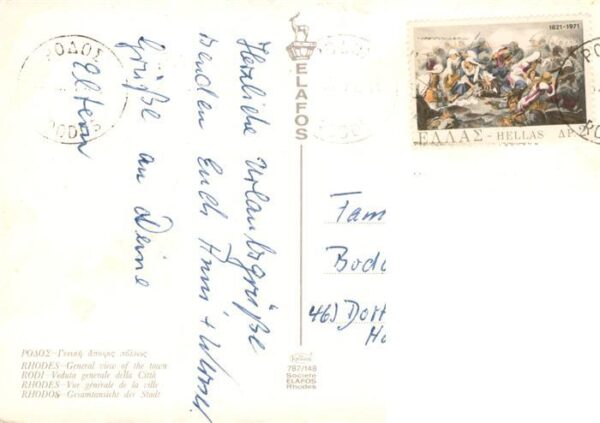 Herzliche Urlaubsgrüße
senden Euch Anni + Werner.
Grüße an Deine
Eltern
ΡΟΔΟΣ
RODOS
ELAFOS
1821-1971
ΕΛΛΑΣ - HELLAS ΔΡ 2
Fam
Bodo
46) Dort
ΡΟΔΟΣ—Γενική άποψις πόλεως
RHODES—General view of the town
RODI Veduta generale della Città
RHODES—Vue générale de la ville
RHODOS—Gesamtansicht der Stadt
787/148
Societe
ELAFOS
Rhodes